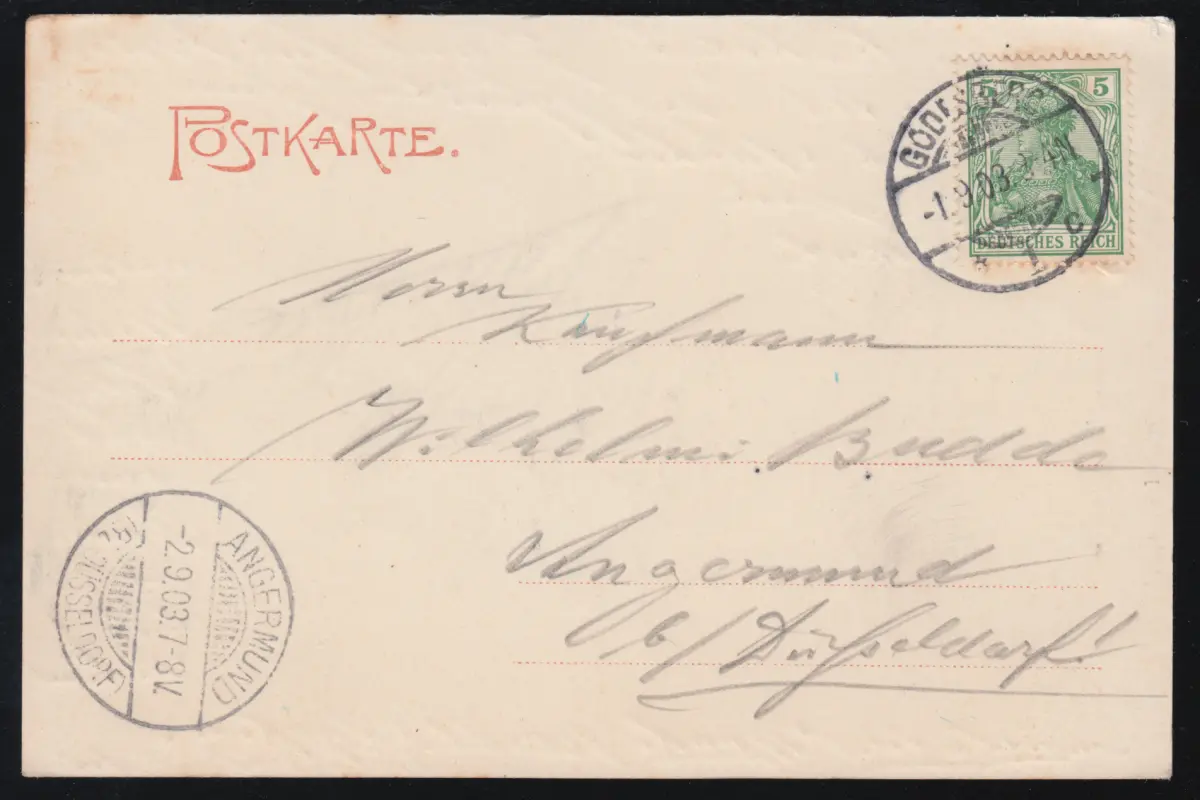 POSTKARTE.
5 5
DEUTSCHES REICH
GODESBERG
-1.9.03
* 1 c
Herrn
Kaufmann
Wilhelm Budde
Angermund
b/ Düsseldorf!
ANGERMUND
-2.9.03.7-8V.
DÜSSELDORF)